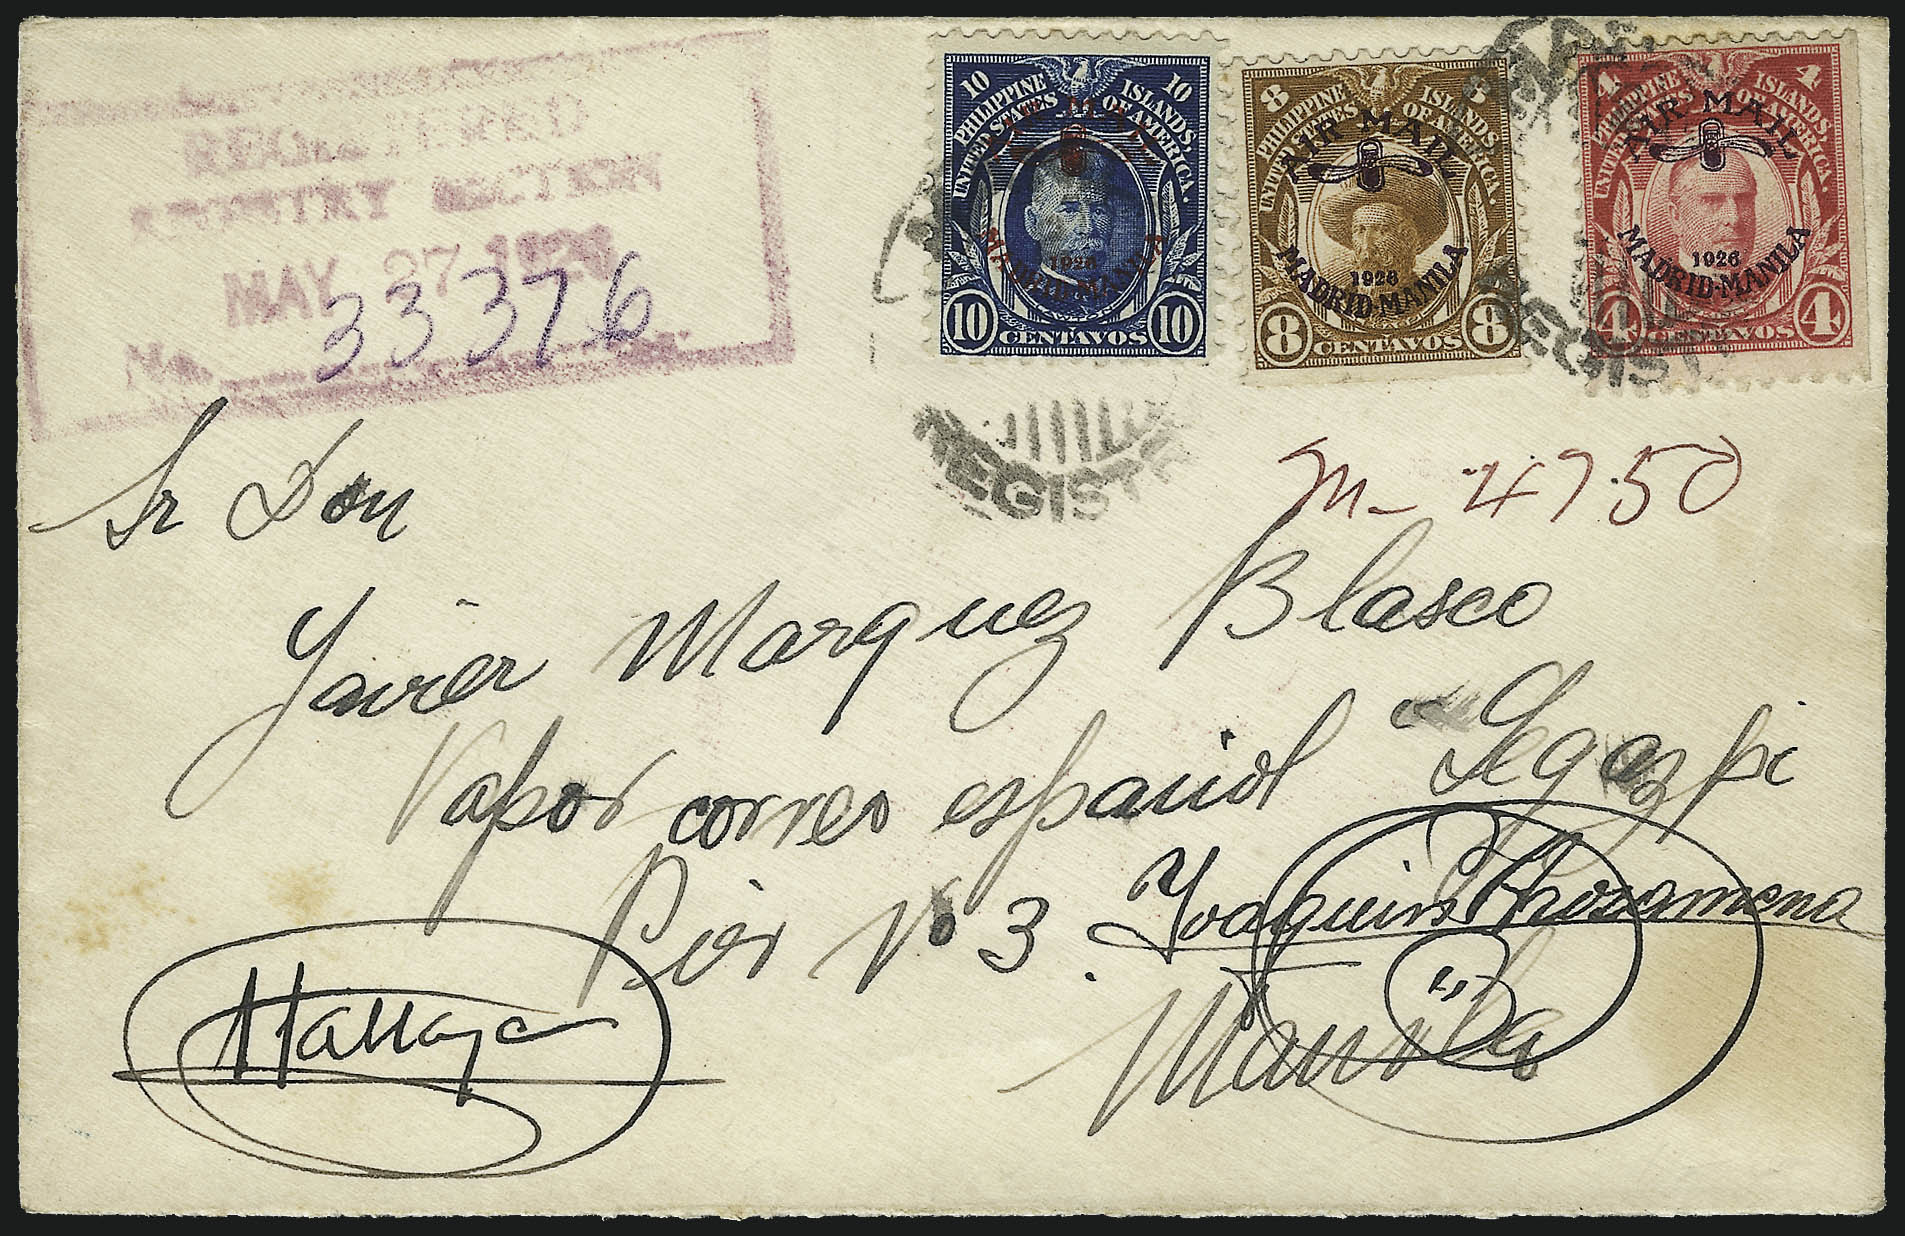 REGISTERED
REGISTRY SECTION
MAY 27 1926
No. 33376
10 10
PHILIPPINE ISLANDS,
UNITED STATES OF AMERICA.
AIR MAIL
1926
MADRID-MANILA
10 CENTAVOS 10
8 8
PHILIPPINE ISLANDS,
UNITED STATES OF AMERICA.
AIR MAIL
1926
MADRID-MANILA
8 CENTAVOS 8
4 4
PHILIPPINE ISLANDS,
UNITED STATES OF AMERICA.
AIR MAIL
1926
MADRID-MANILA
4 CENTAVOS 4
REGIST
REGIST
m- 4750
Sr Don
Javier Marquez Blasco
Vapor correo español "Legazpi"
Pier No 3. Joaquin
Manila